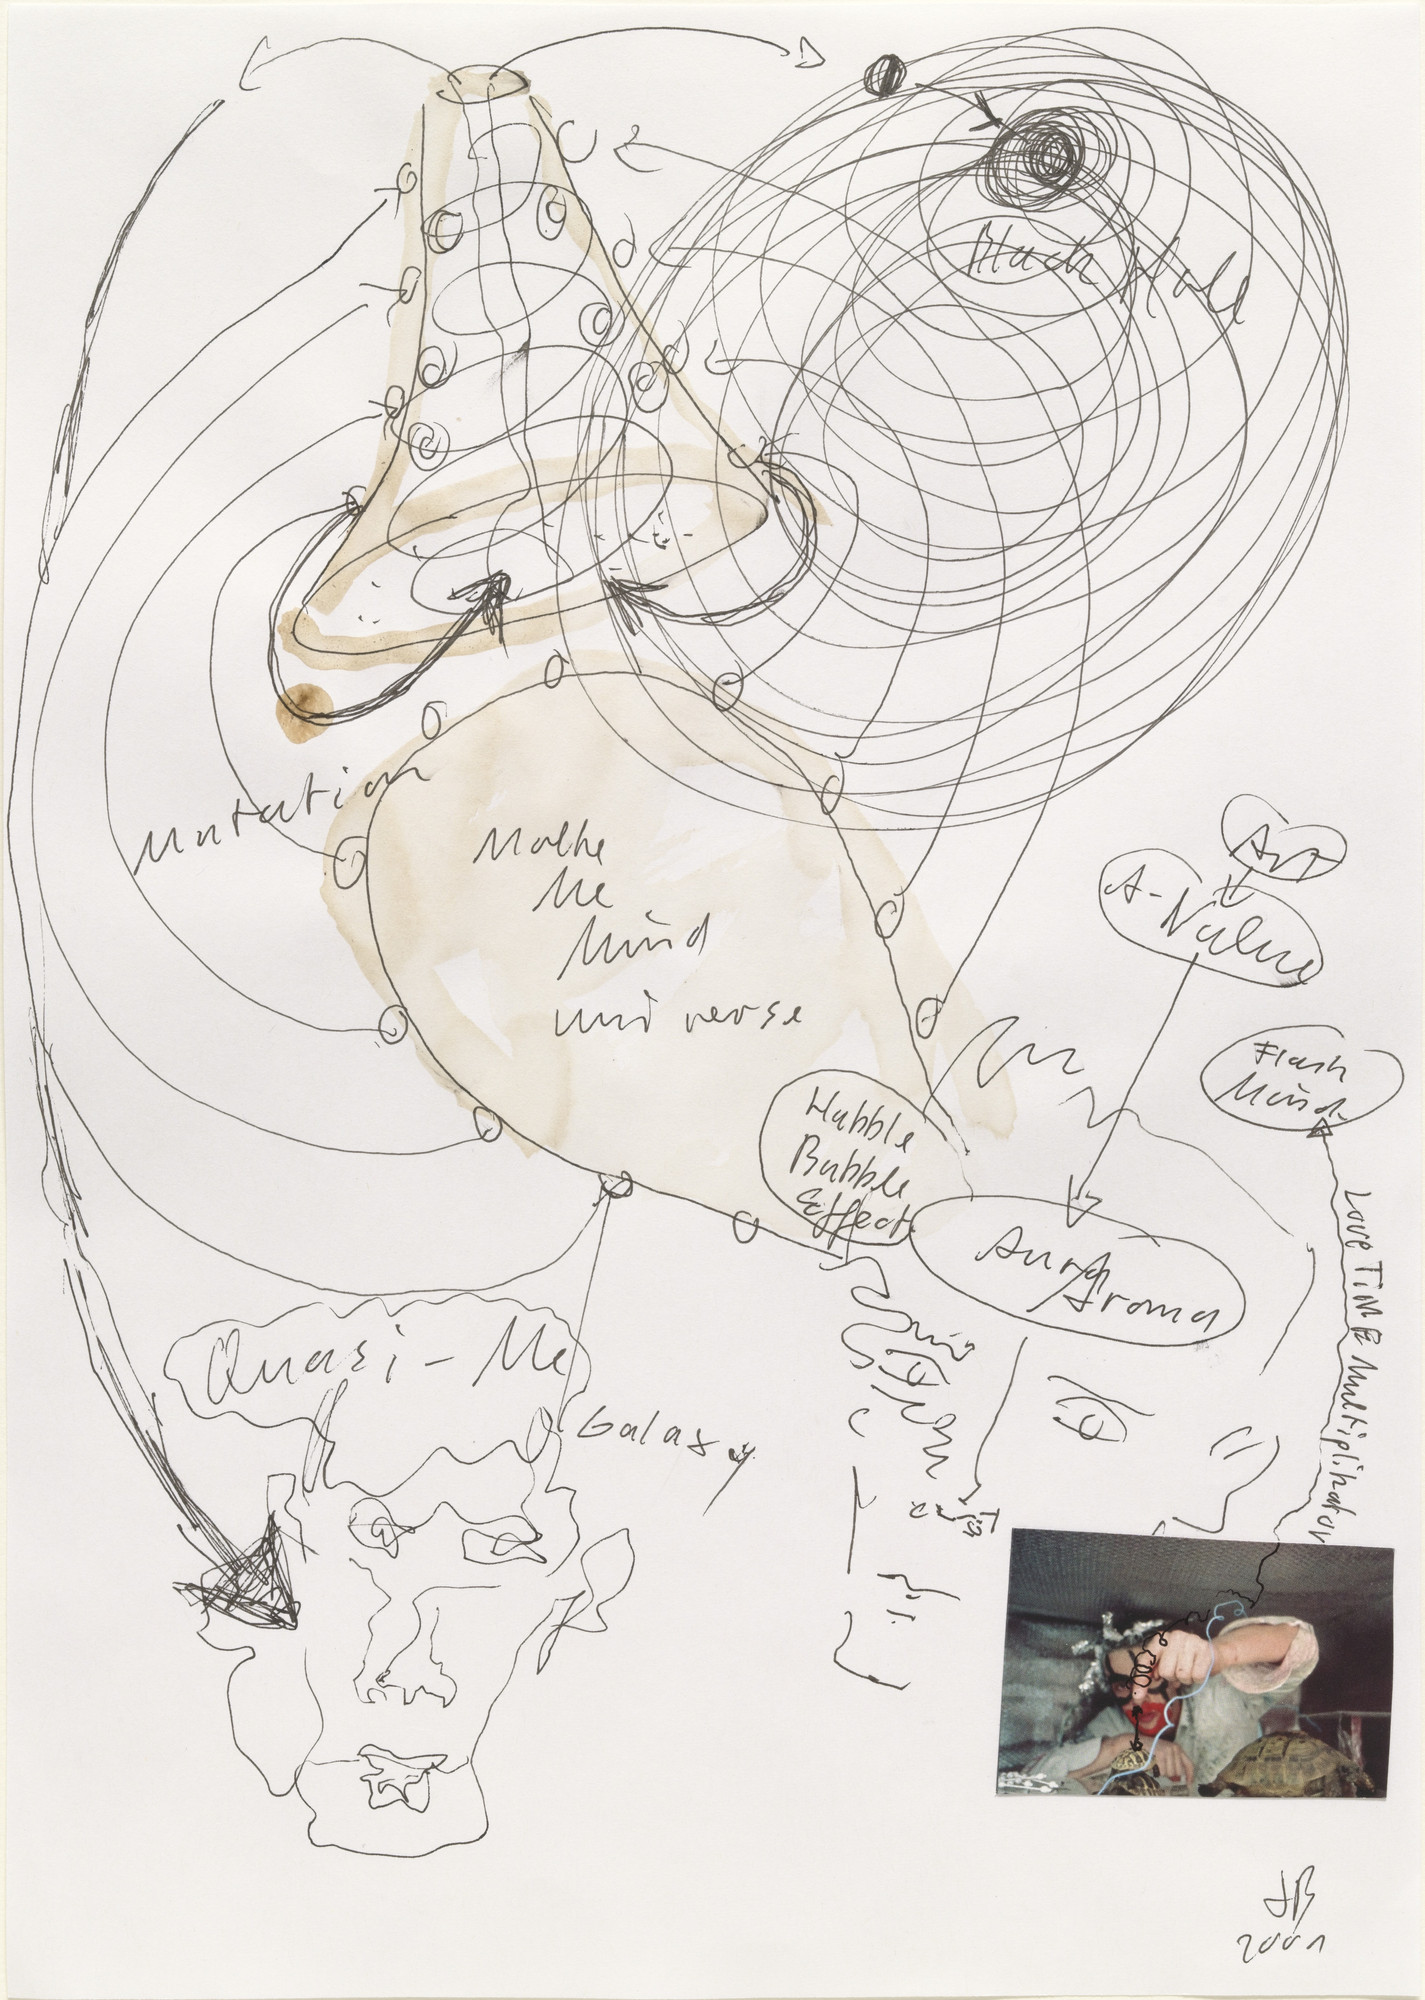 Black Hole
Mutation
Mothe
Me
Mind
universe
Art
A-Value
Flash
Mind
Hubble
Bubble
Effect
Aura
Aroma
Love TIME Multiplikator
Quasi-Me
Galaxy
JB
2001